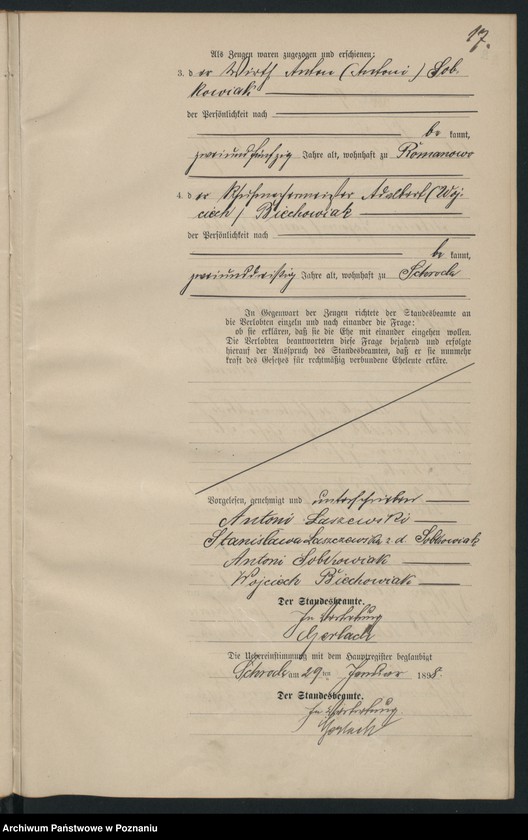 17.
Als Zeugen waren zugezogen und erschienen:
3. d er Wirth Anton (Antoni) Sob-
kowiak
der Persönlichkeit nach
be kannt,
zweiundfünfzig Jahre alt, wohnhaft zu Romanowo
4. d er Adalbert (Woj-
ciech) Biechowiak
der Persönlichkeit nach
be kannt,
zweiunddreißig Jahre alt, wohnhaft zu Schroda
In Gegenwart der Zeugen richtete der Standesbeamte an
die Verlobten einzeln und nach einander die Frage:
ob sie erklären, daß sie die Ehe mit einander eingehen wollen.
Die Verlobten beantworteten diese Frage bejahend und erfolgte
hierauf der Ausspruch des Standesbeamten, daß er sie nunmehr
kraft des Gesetzes für rechtmäßig verbundene Eheleute erkäre.
Vorgelesen, genehmigt und unterschrieben
Antoni Laszewski
Stanisława Laszczewska z d. Sobkowiak
Antoni Sobkowiak
Wojciech Biechowiak
Der Standesbeamte.
In Vertretung
Gerlach
Die Uebereinstimmung mit dem Hauptregister beglaubigt
Schroda am 29 ten Januar 1898.
Der Standesbeamte.
In Vertretung.
Gerlach
Archiwum Państwowe w Poznaniu